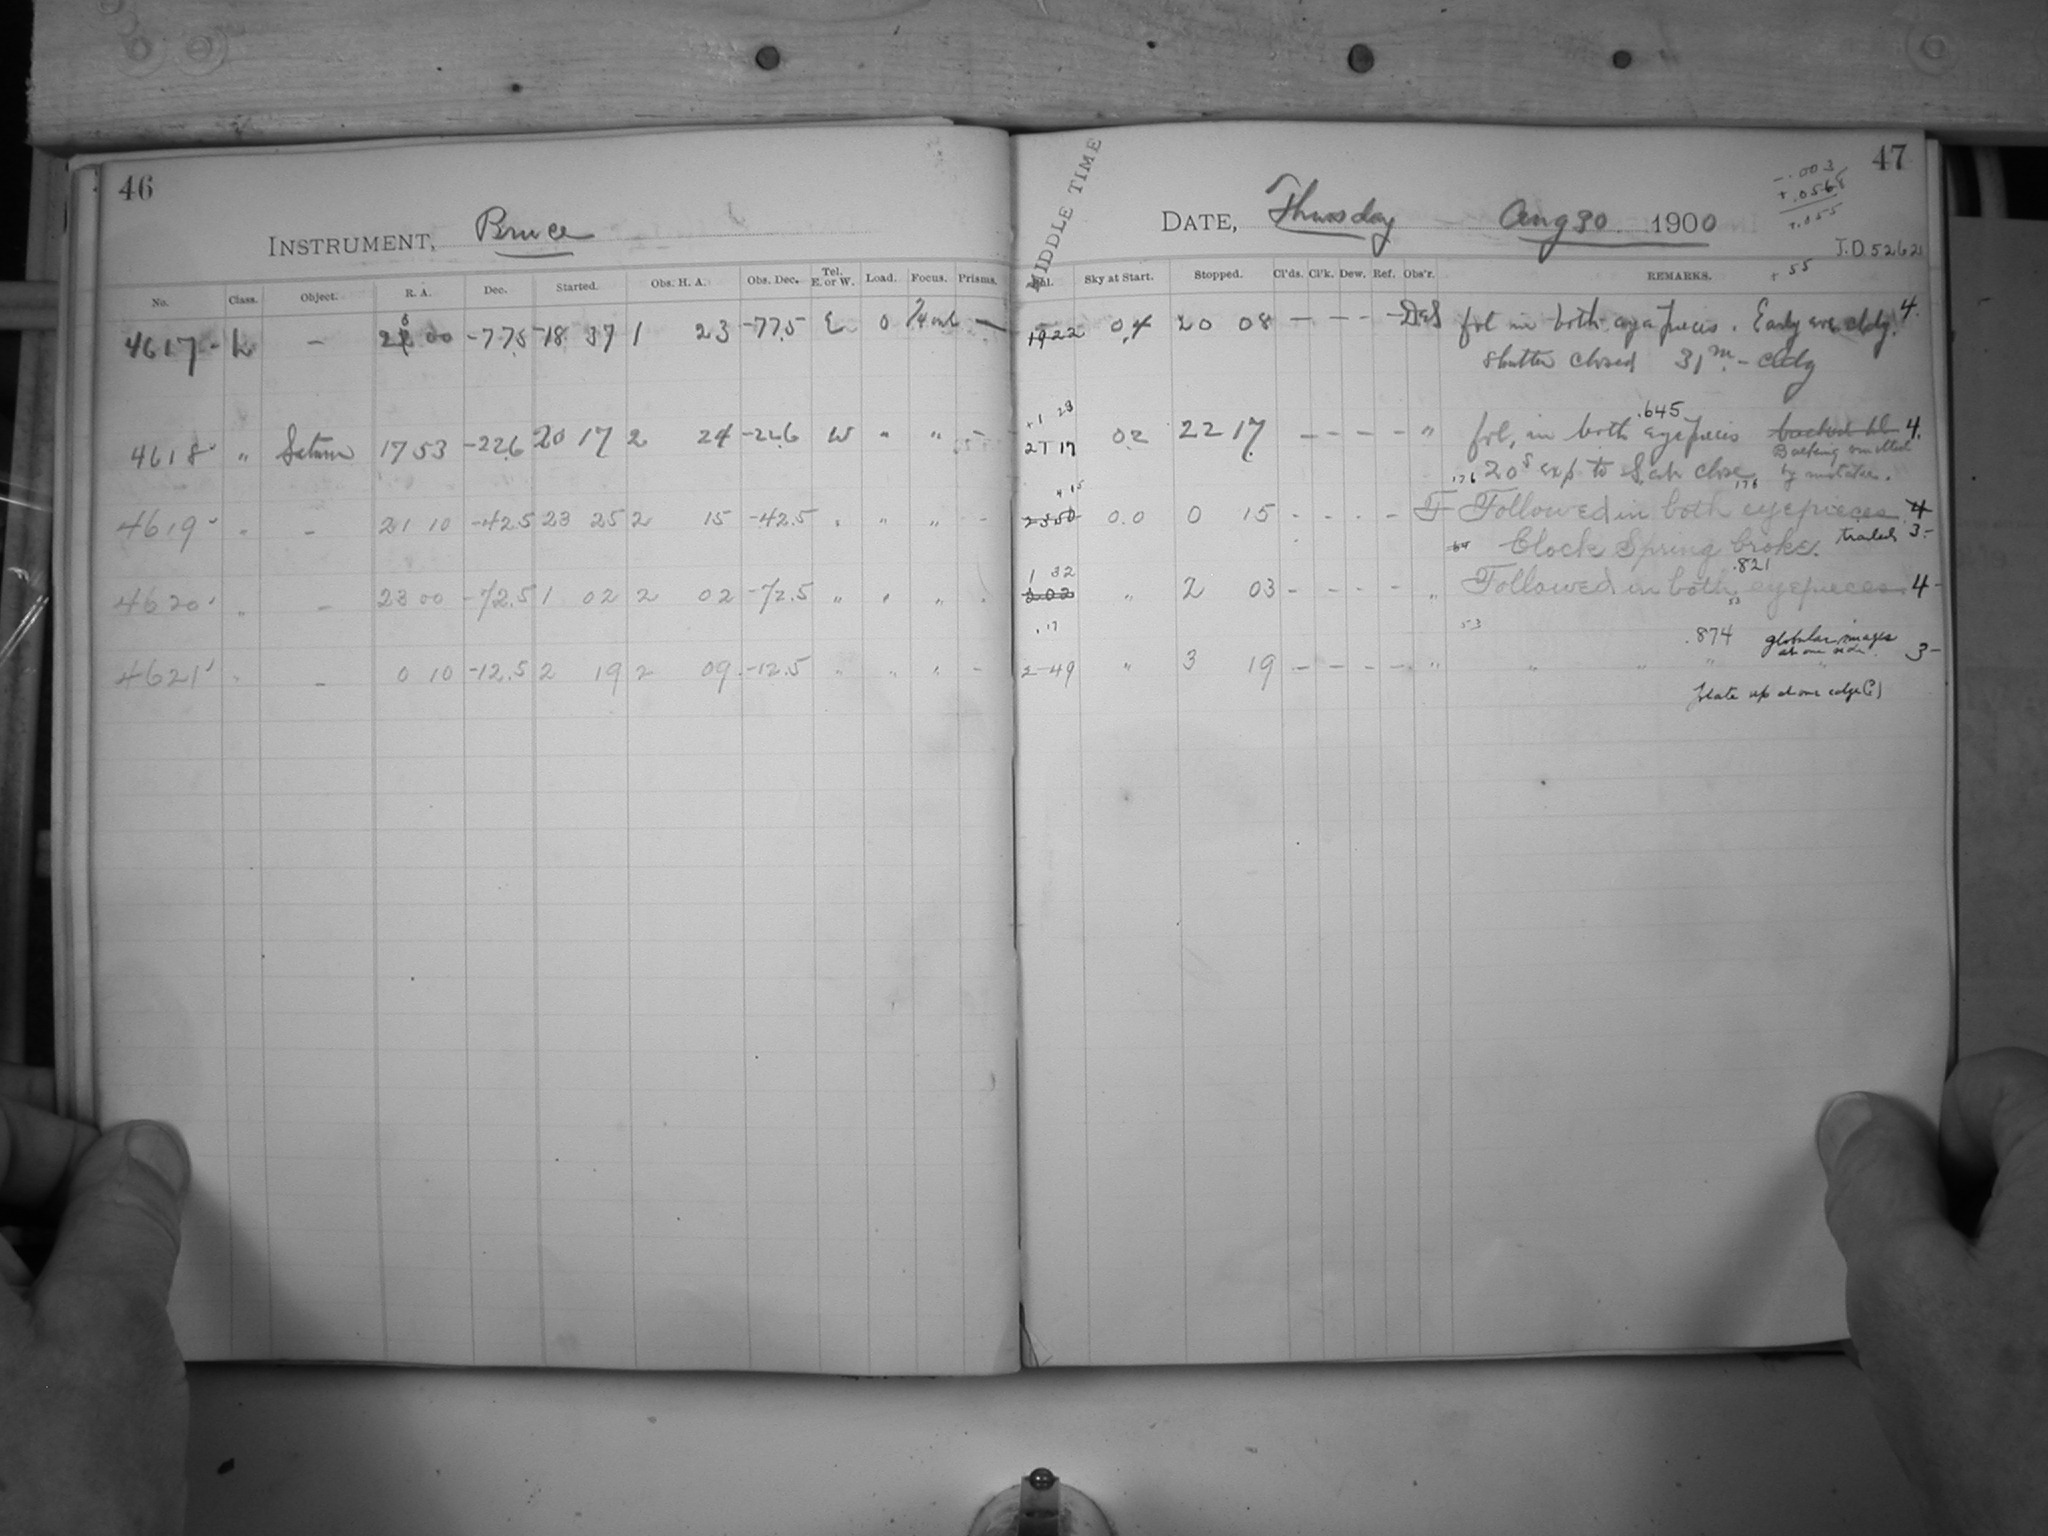 46
INSTRUMENT, Bruce
No. Class. Object. R. A. Dec. Started. Obs. H. A. Obs. Dec. Tel. E. or W. Load. Focus. Prisms.
4617 L — 00 -77.5 18 37 1 23 -77.5 E 0 —
4618 " Saturn 17 53 -22.6 20 17 2 24 -22.6 W " " —
4619 " — 21 10 -42.5 23 25 2 15 -42.5 " " " —
4620 " — 23 00 -72.5 1 02 2 02 -72.5 " " "
4621 " — 0 10 -12.5 2 19 2 09 -12.5 " " " —
47
-.003
+.0568
+.055
MIDDLE TIME
DATE, Thursday Aug 30 1900
J.D. 52621
+55
Sky at Start. Stopped. Cl'ds. Cl'k. Dew. Ref. Obs'r. REMARKS.
1922 0.4 20 08 — — — — fol in both eye pieces. Early eve cldy. 4.
shutter closed 31 m — cldy
+1 28 .645
21 17 02 22 17 — — — — " fol, in both eyepieces 4.
Backing omitted
176 20s exp to Sat close 176 by mistake.
15
2350 0.0 0 15 - - - - F Followed in both eyepieces. 4
Clock Spring broke. trailed 3-
1 32 .821
202 " 2 03 - - - - " Followed in both eyepieces. 4-
53 53
.17 .874 globular images
at one side.
2 49 " 3 19 — — — — " " " " " 3-
Plate up at one edge (?)